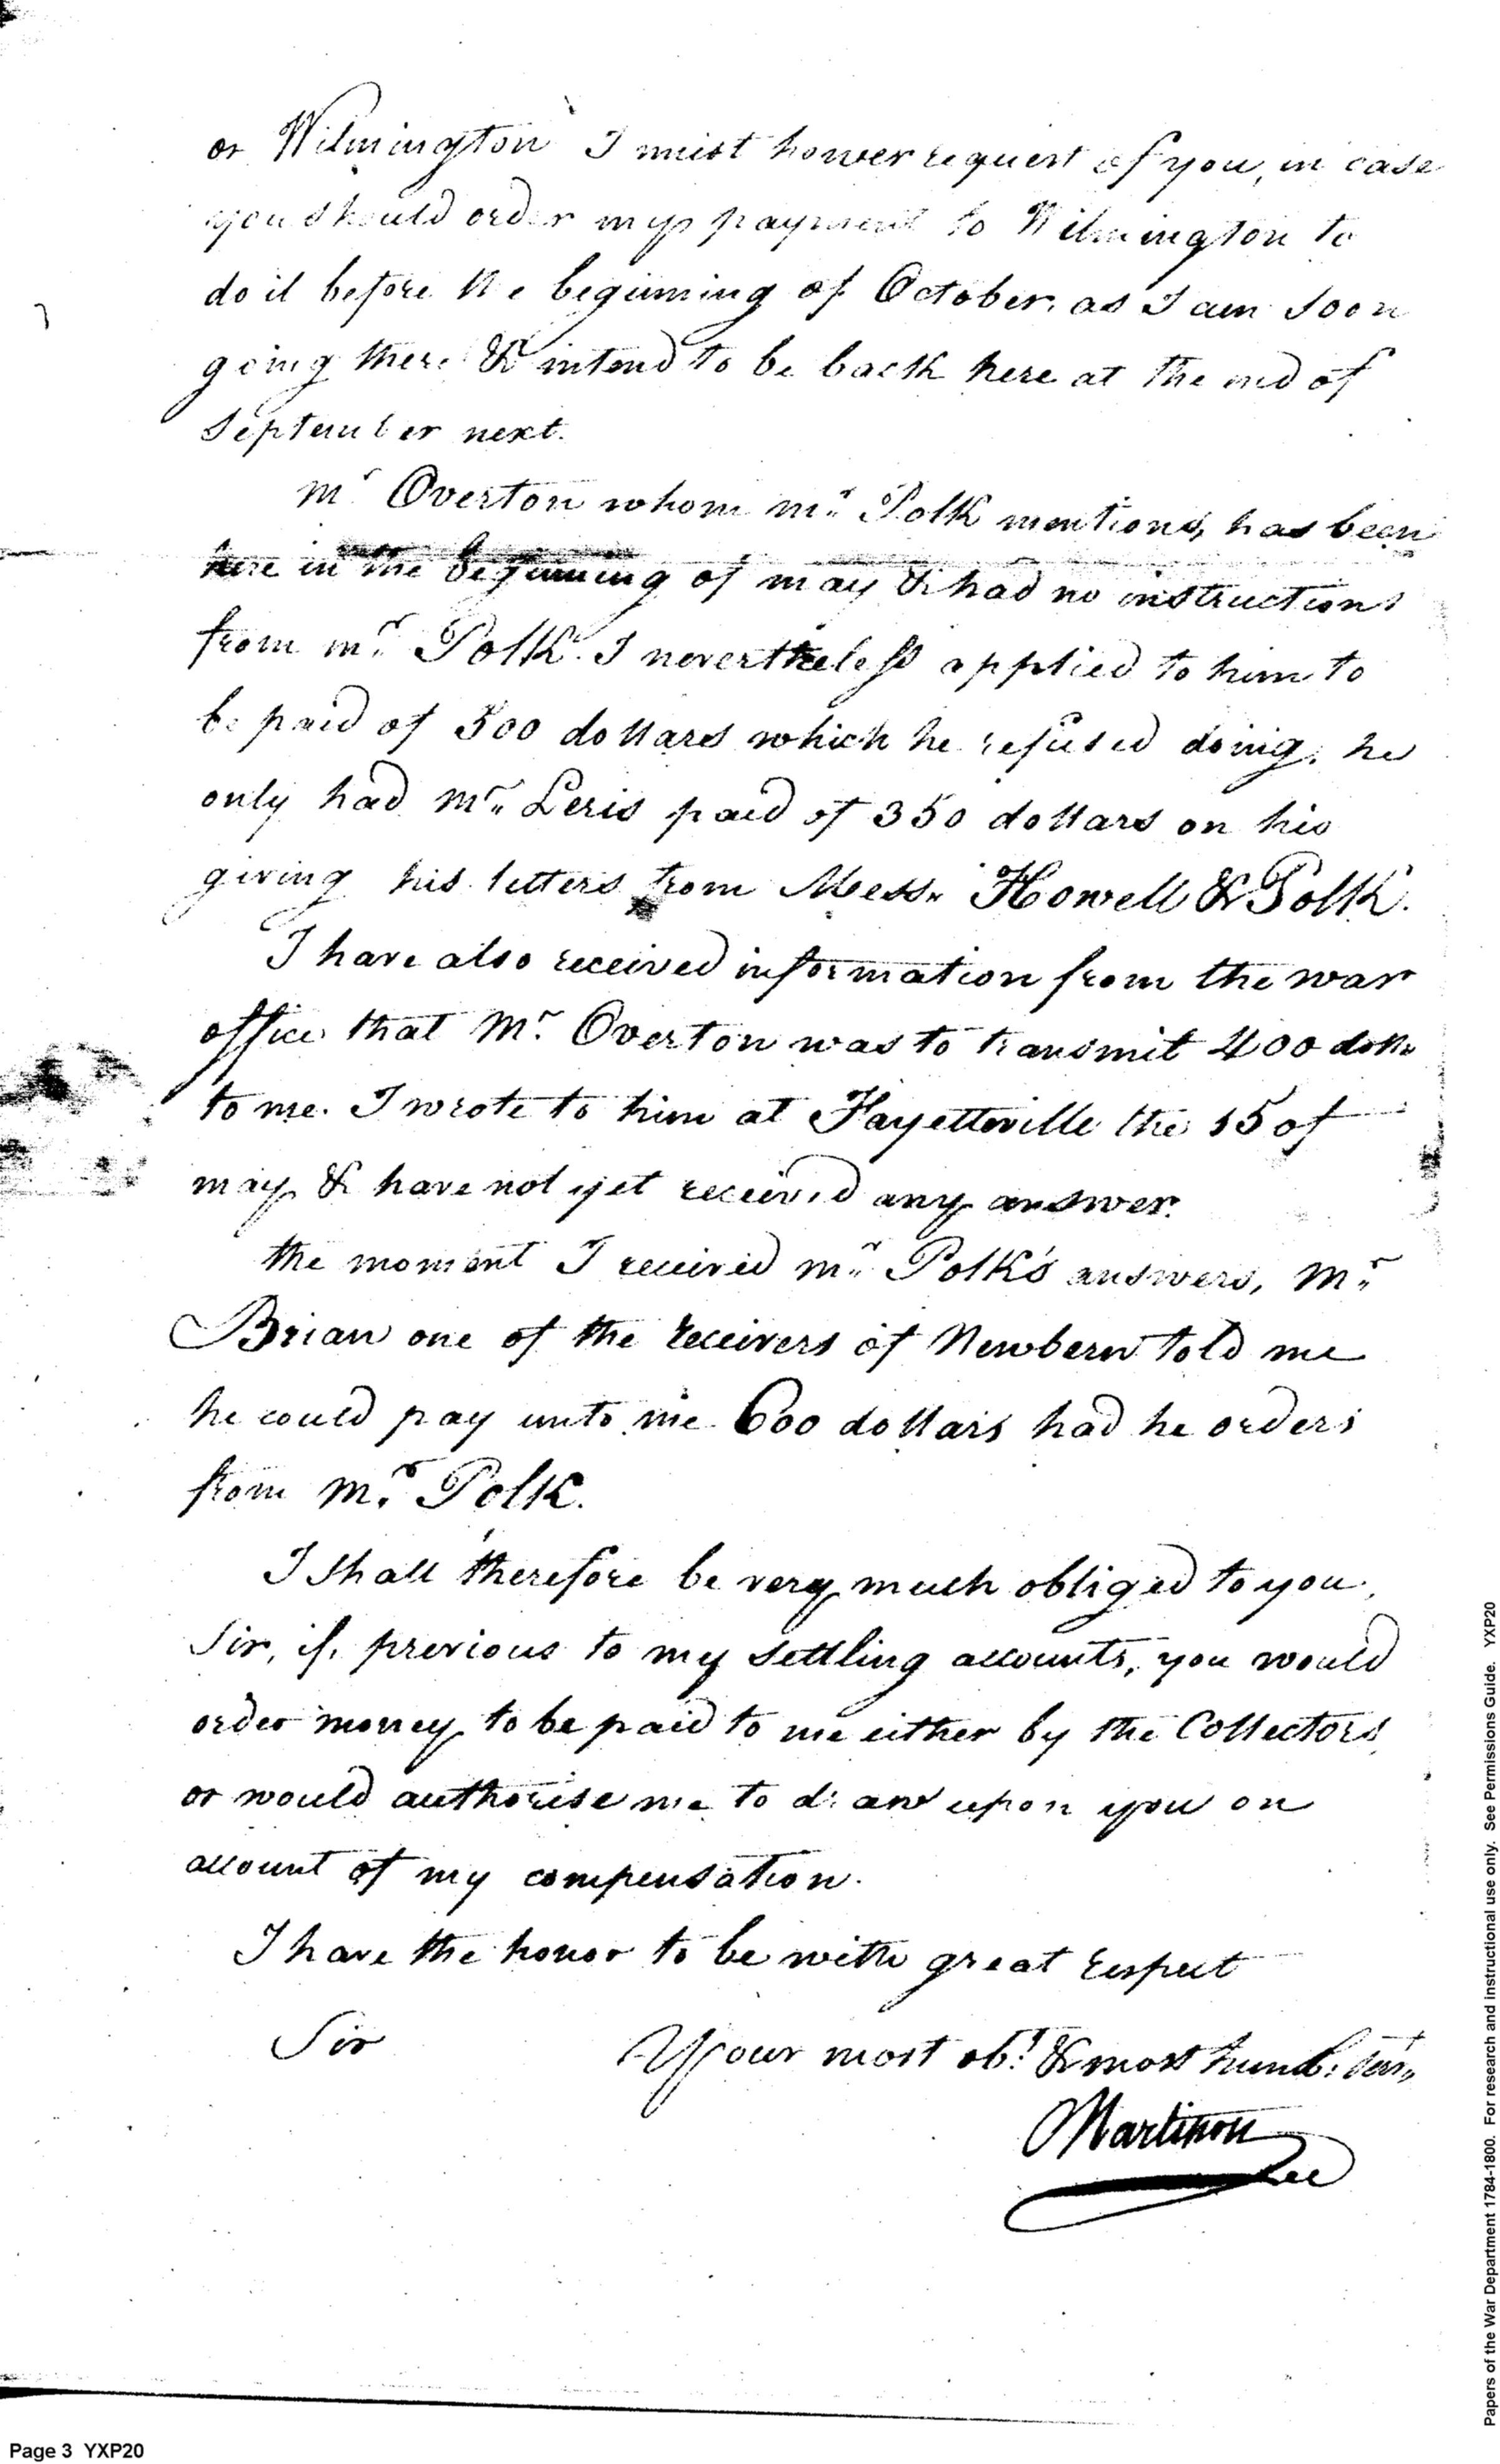 or Wilmington I must hower request of you, in case
you should order my payment to Wilmington to
do it before the beginning of October, as I am soon
going there & intend to be back here at the end of
September next.
Mr. Overton whom mr. Polk mentions, has been
here in the beginning of may & had no instructions
from mr. Polk. I nevertheless applied to him to
be paid of 500 dollars which he refused doing, he
only had mr. Leris paid of 350 dollars on his
giving his letters from Mess. Howell & Polk.
I have also received information from the war
office that Mr. Overton was to transmit 400 dolls
to me. I wrote to him at Fayetteville the 15 of
may & have not yet received any answer.
the moment I received mr. Polk's answers, mr.
Brian one of the receivers of Newbern told me
he could pay unto me 600 dollars had he orders
from mr. Polk.
I shall therefore be very much obliged to you,
Sir, if, previous to my settling accounts, you would
order money to be paid to me either by the Collectors
or would authorise me to draw upon you on
account of my compensation.
I have the honor to be with great respect
Sir Your most obt. & most humb. serv.
Martinon
Papers of the War Department 1784-1800. For research and instructional use only. See Permissions Guide. YXP20
Page 3 YXP20